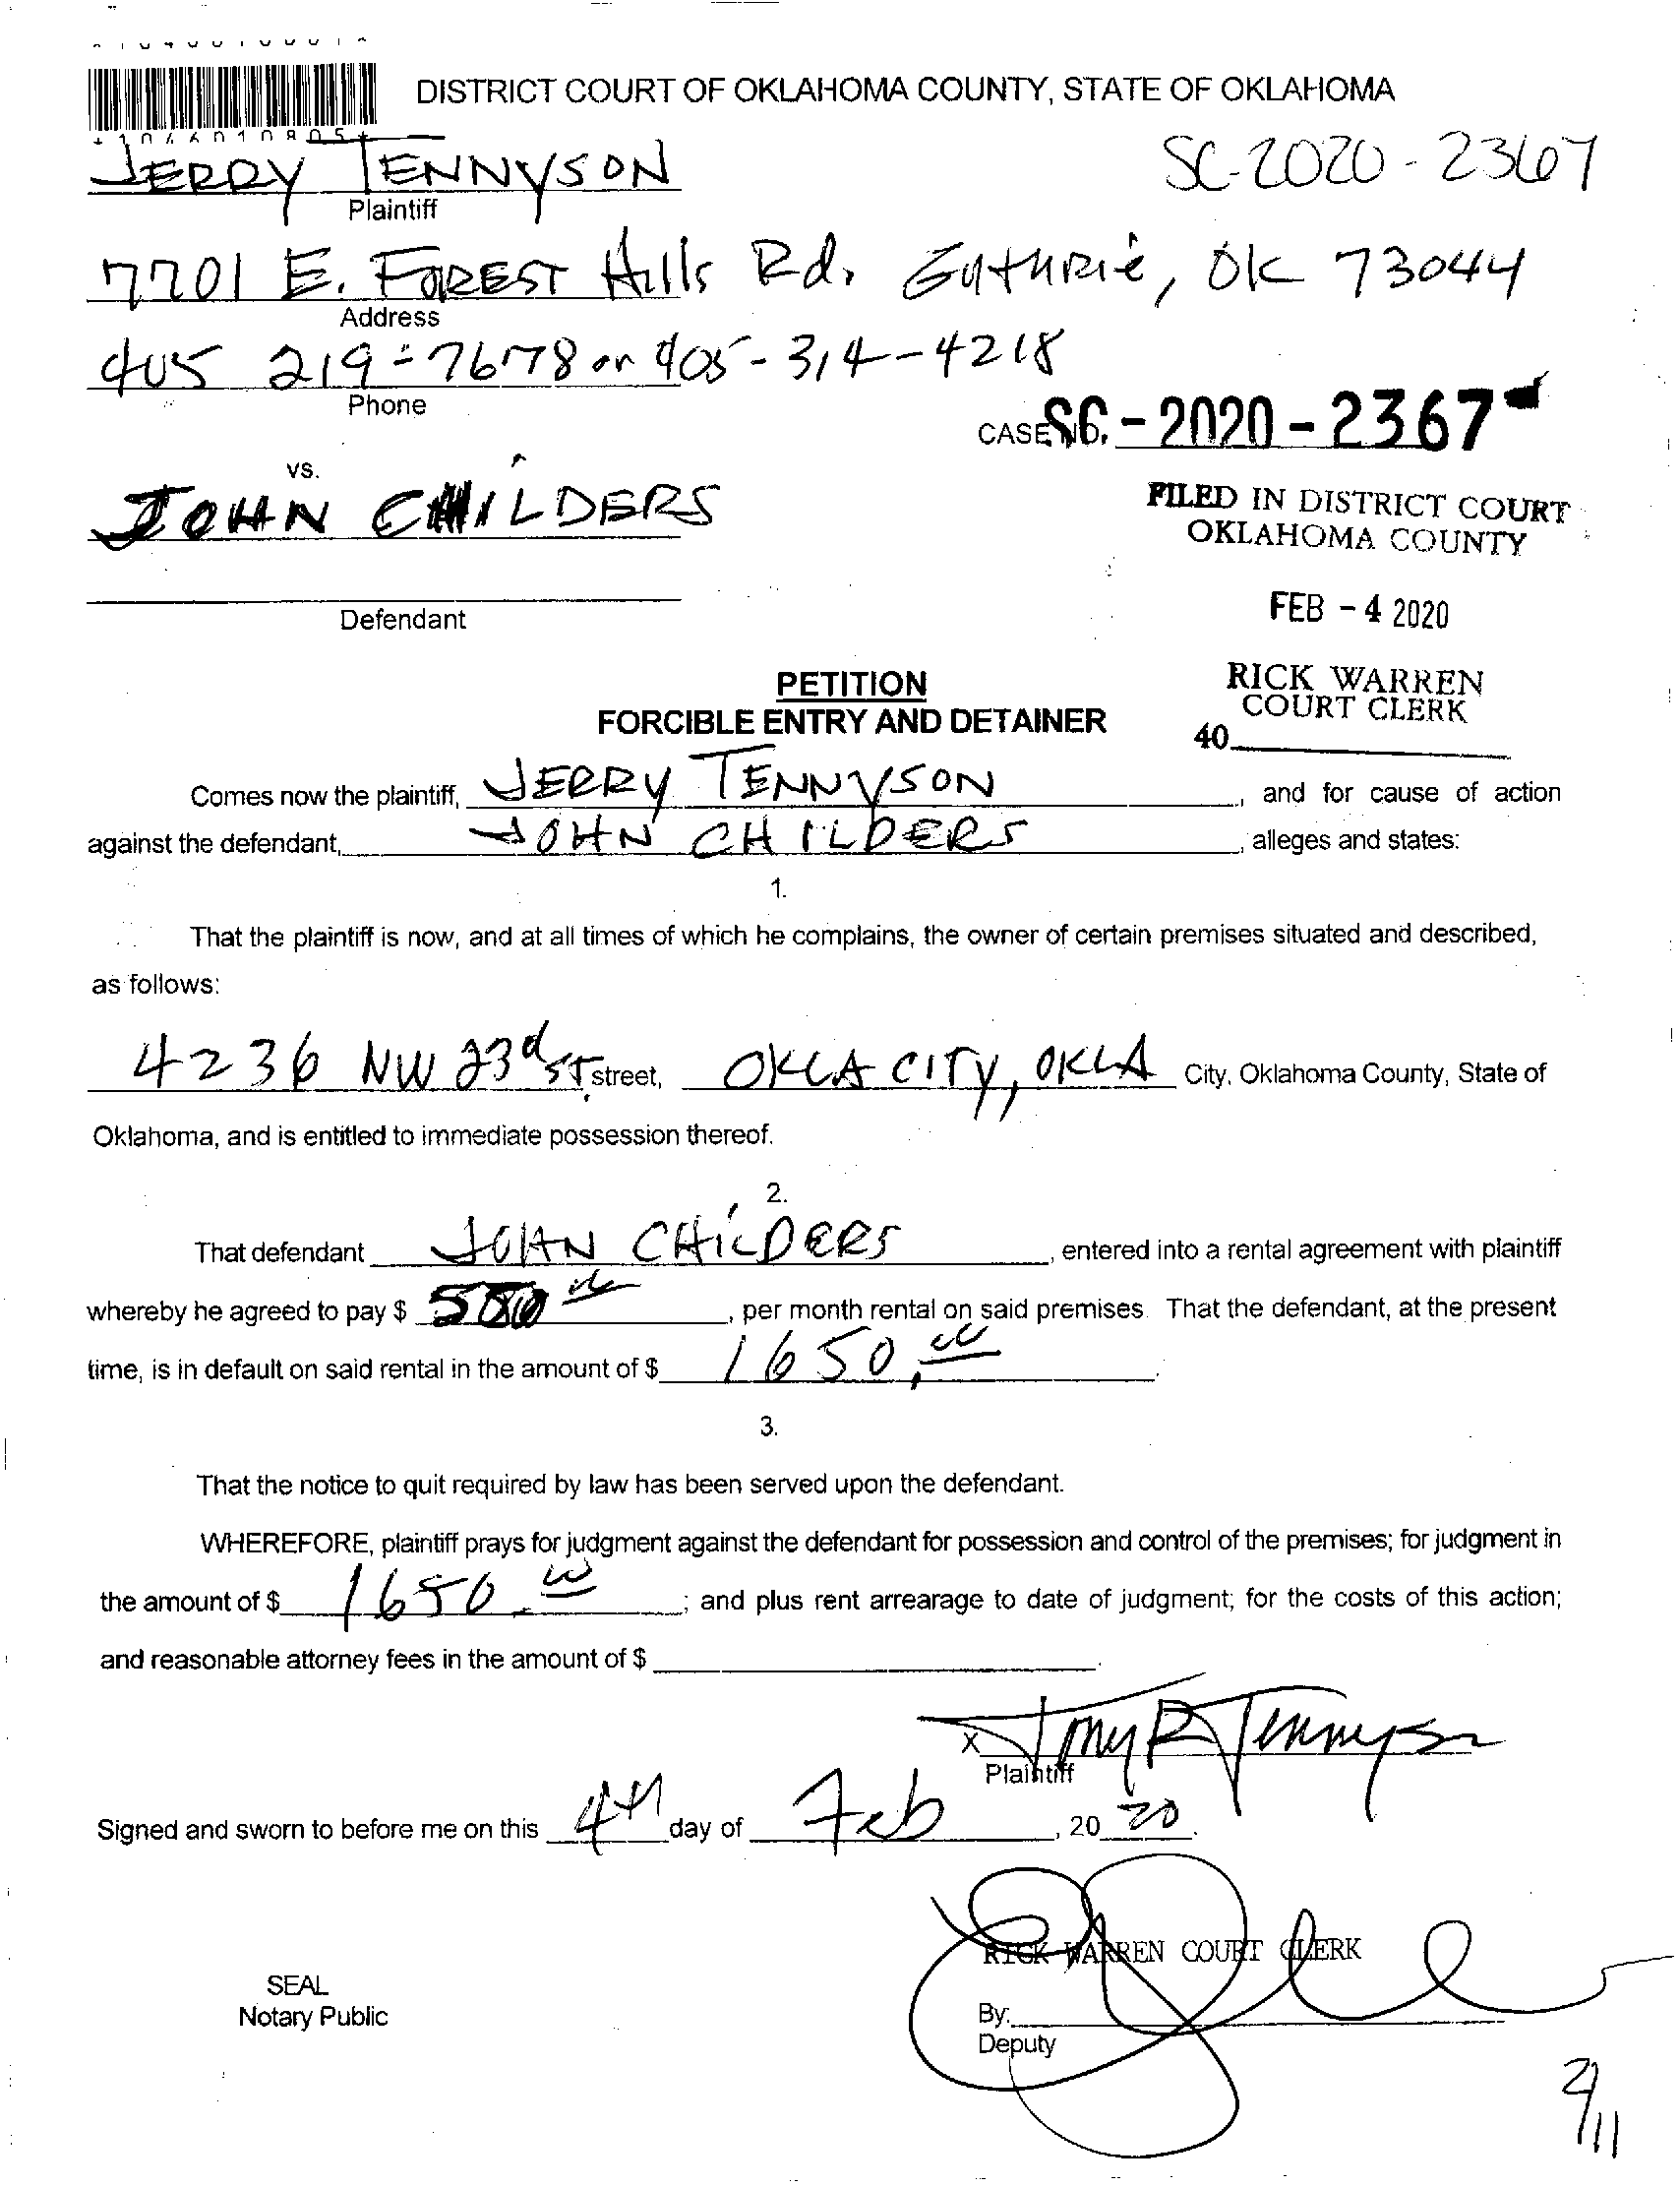 DISTRICT COURT OF OKLAHOMA COUNTY, STATE OF OKLAHOMA
JERRY TENNYSON
SC-2020-2367
Plaintiff
7701 E. FOREST Hills Rd. Guthrie, OK 73044
Address
405 219-7678 or 405-314-4218
Phone
CASE NO. SC-2020-2367
vs.
JOHN CHILDERS
FILED IN DISTRICT COURT
OKLAHOMA COUNTY
Defendant
FEB - 4 2020
PETITION
FORCIBLE ENTRY AND DETAINER
RICK WARREN
COURT CLERK
40
Comes now the plaintiff, JERRY TENNYSON, and for cause of action
against the defendant, JOHN CHILDERS, alleges and states:
1.
That the plaintiff is now, and at all times of which he complains, the owner of certain premises situated and described,
as follows:
4236 NW 23d ST. street, OKLA CITY, OKLA City, Oklahoma County, State of
Oklahoma, and is entitled to immediate possession thereof.
2.
That defendant JOHN CHILDERS, entered into a rental agreement with plaintiff
whereby he agreed to pay $ , per month rental on said premises. That the defendant, at the present
time, is in default on said rental in the amount of $ 1650.00.
3.
That the notice to quit required by law has been served upon the defendant.
WHEREFORE, plaintiff prays for judgment against the defendant for possession and control of the premises; for judgment in
the amount of $ 1650.00; and plus rent arrearage to date of judgment; for the costs of this action;
and reasonable attorney fees in the amount of $ .
X
Plaintiff
Signed and sworn to before me on this 4th day of Feb, 2020.
RICK WARREN COURT CLERK
SEAL
Notary Public
By:
Deputy
2/11